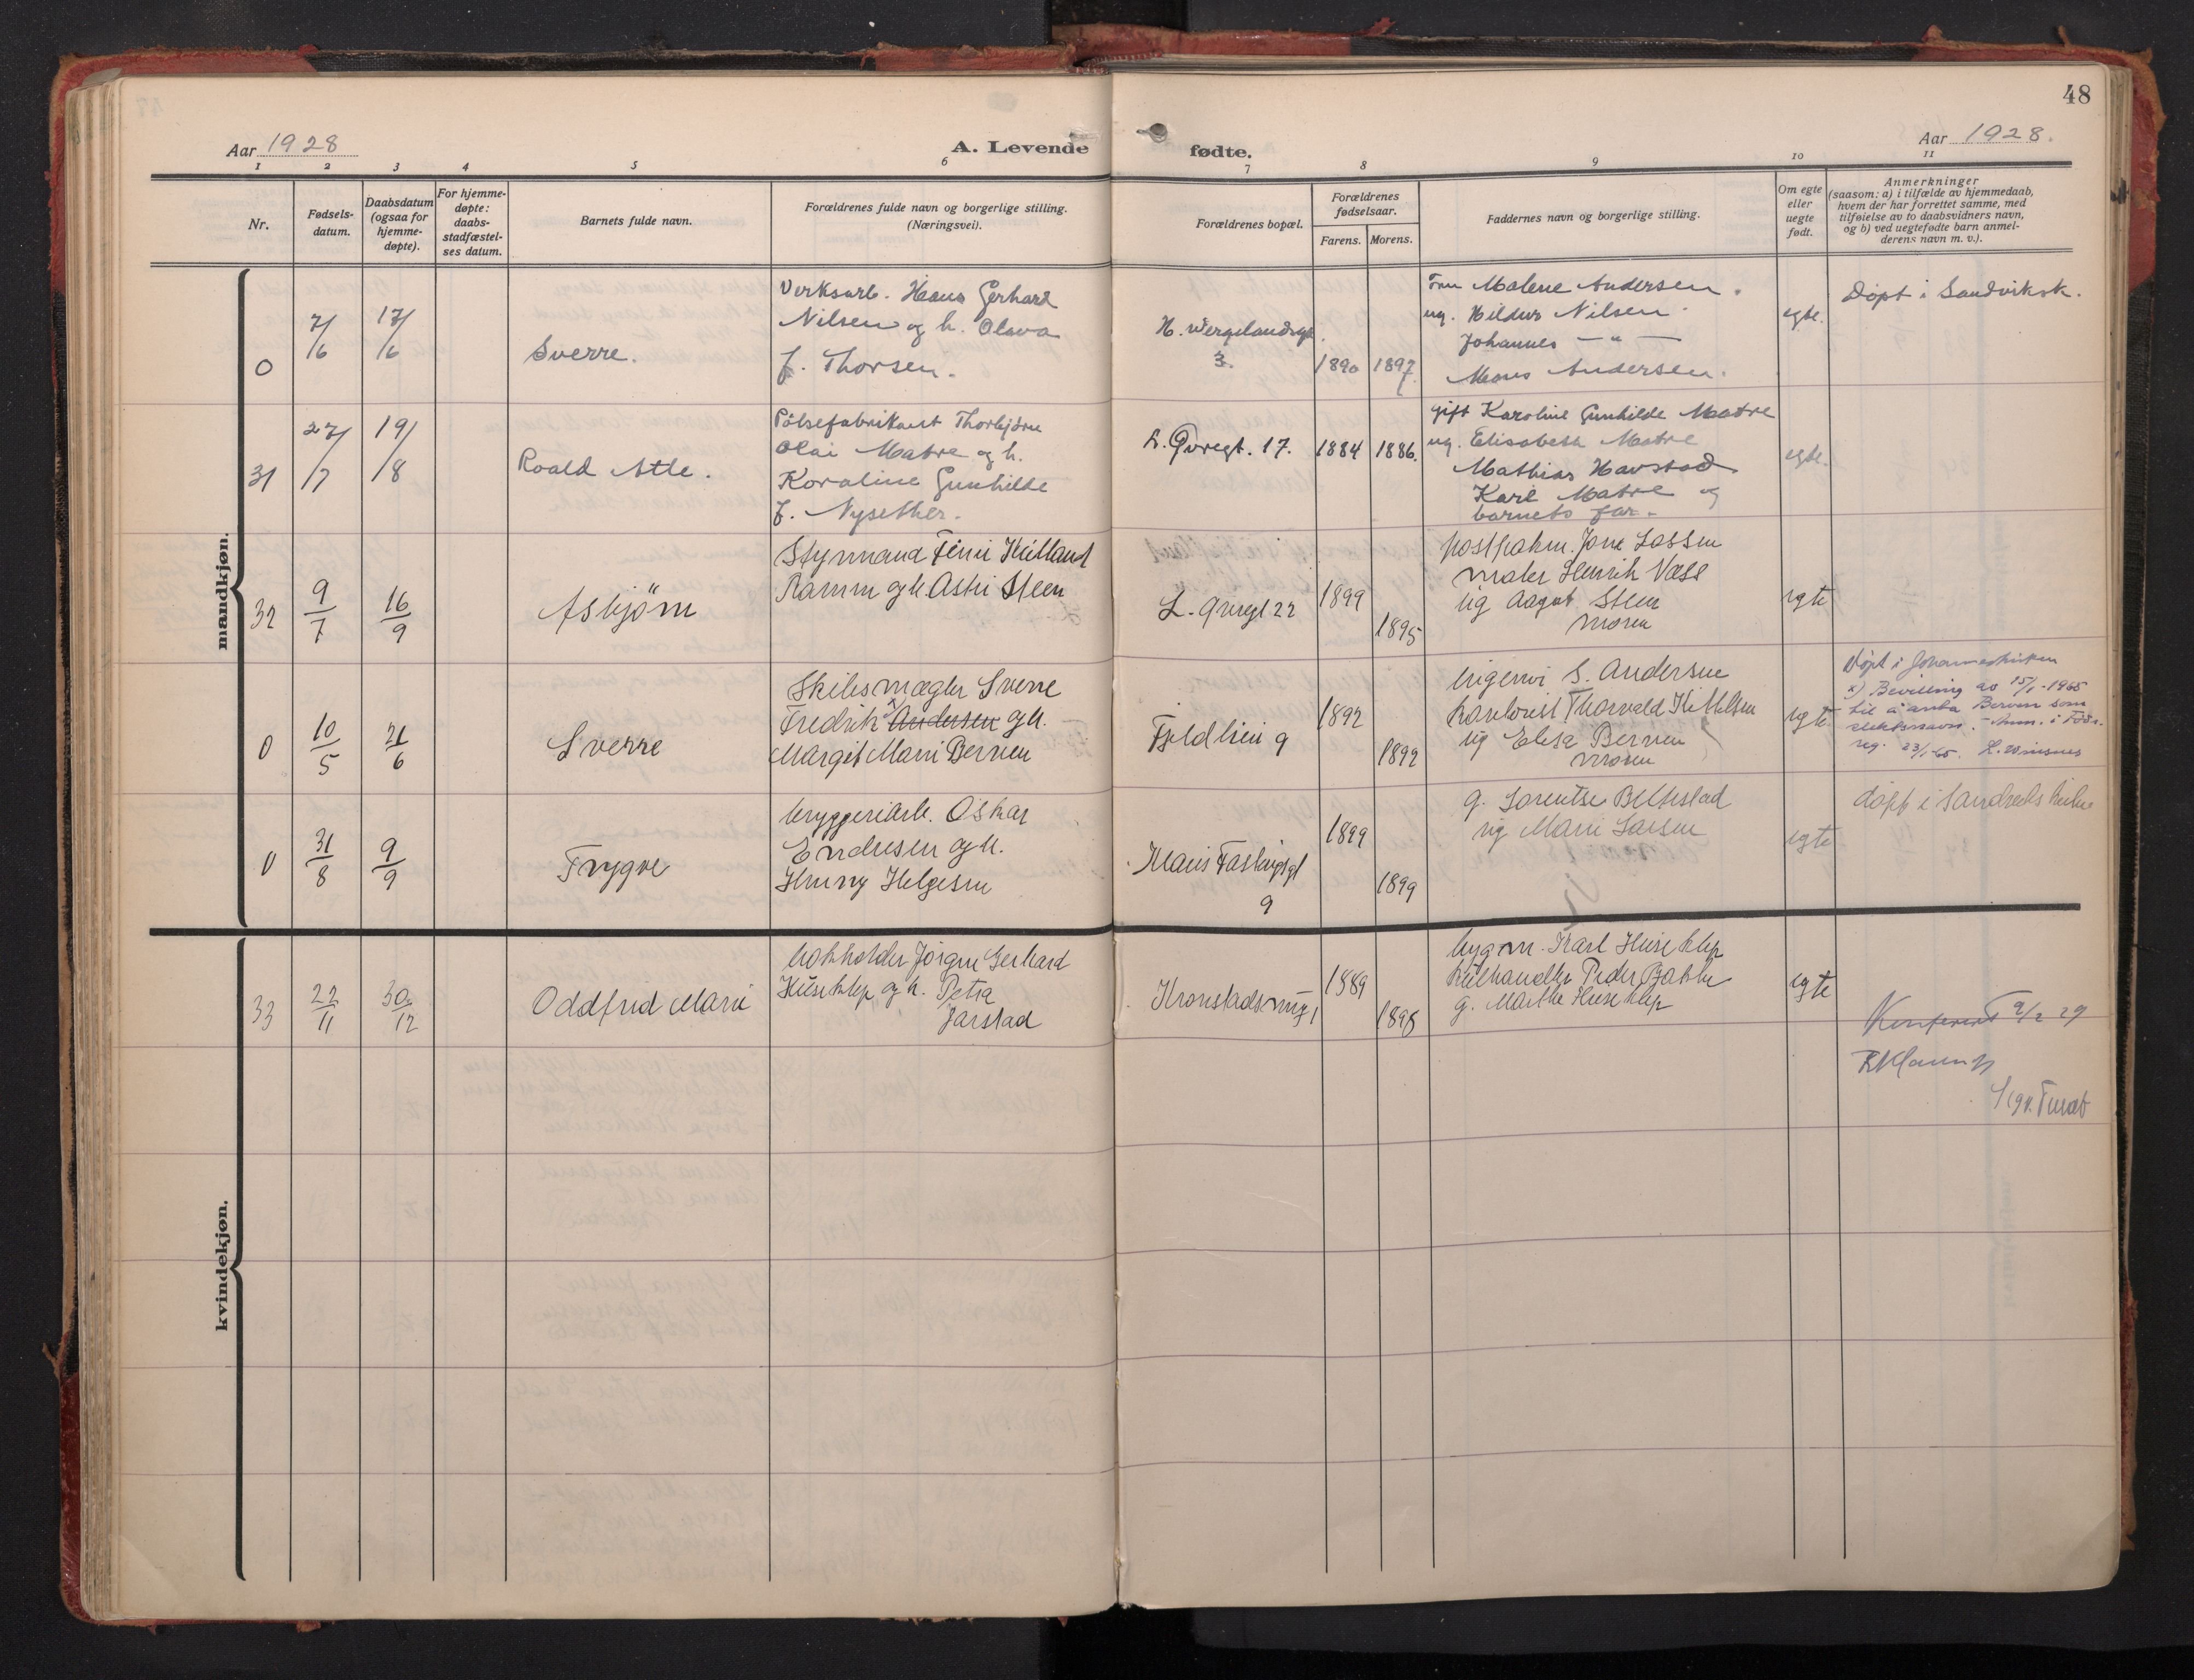 48
Aar 1928
A. Levende
fødte.
Aar 1928.
1 2 3 4 5 6 7 8 9 10 11
Nr.
Fødsels-
datum.
Daabsdatum
(ogsaa for
hjemme-
døpte).
For hjemme-
døpte:
daabs-
stadfæstel-
ses datum.
Barnets fulde navn.
Forældrenes fulde navn og borgerlige stilling.
(Næringsvei).
Forældrenes bopæl.
Forældrenes
fødselsaar.
Farens. Morens.
Faddernes navn og borgerlige stilling.
Om egte
eller
uegte
født.
Anmerkninger
(saasom: a) i tilfælde av hjemmedaab,
hvem der har forrettet samme, med
tilføielse av to daabsvidners navn,
og b) ved uegtefødte barn anmel-
derens navn m. v.).
mandkjøn.
0
7/6
17/6
Sverre.
Verksarb. Hans Gerhard
Nilsen og h. Olava
f. Thorsen.
H. Wergelandsgt.
3.
1890 1897.
Fru Malene Andersen.
ug. Hildur Nilsen.
Johannes — " —
Mons Andersen.
egte.
Døpt i Sandviksk.
31
27/7
19/8
Roald Atle.
Pølsefabrikant Thorbjørn
Olai Matre og h.
Karoline Gunhilde
f. Nysether.
L. Øvregt. 17.
1884 1886.
gift Karoline Gunhilde Matre
ug. Elisabeth Matre
Mathias Havstad
Karl Matre og
barnets far.
egte.
32
9/7
16/9
Asbjørn
Styrmand Finn Kielland
Ramm og h. Astri Steen
L. Øvregt 22
1899
1895
Lassen
maler Henrik Næss
ug Aagot Steen
moren
egte
0
10/5
21/6
Sverre
Skibsmægler Sverre
Fredrik x) Andersen og h.
Margit Marie Berven
Fjeldlien 9
1892
1892
S. Andersen
Thorvald Kittelsen
ug Elisa Berven
moren
egte
Døpt i Johanneskirken
x) Bevilling av 15/1-1965
til å anta Berven som
slektsnavn. - Anm. i Føds.
reg. 23/1-65. L. Winsnes
0
31/8
9/9
Trygve
bryggeriarb. Oskar
Endresen og h.
Henny Helgesen
Klaus Fastingsgt
9
1899
1899
g. Lorentse
ug Marie Larsen
egte
døpt i Sandvikskirke
kvindekjøn.
33
22/11
30/12
Oddfrid Marie
bokholder Jørgen Gerhard
Huseklep og h. Petra
Jarstad
Kronstadsvei 1
1889
1895
bygm. Karl Huseklep
Peder Bakke
g. Marthe Huseklep
egte
Konferert 9/2 29